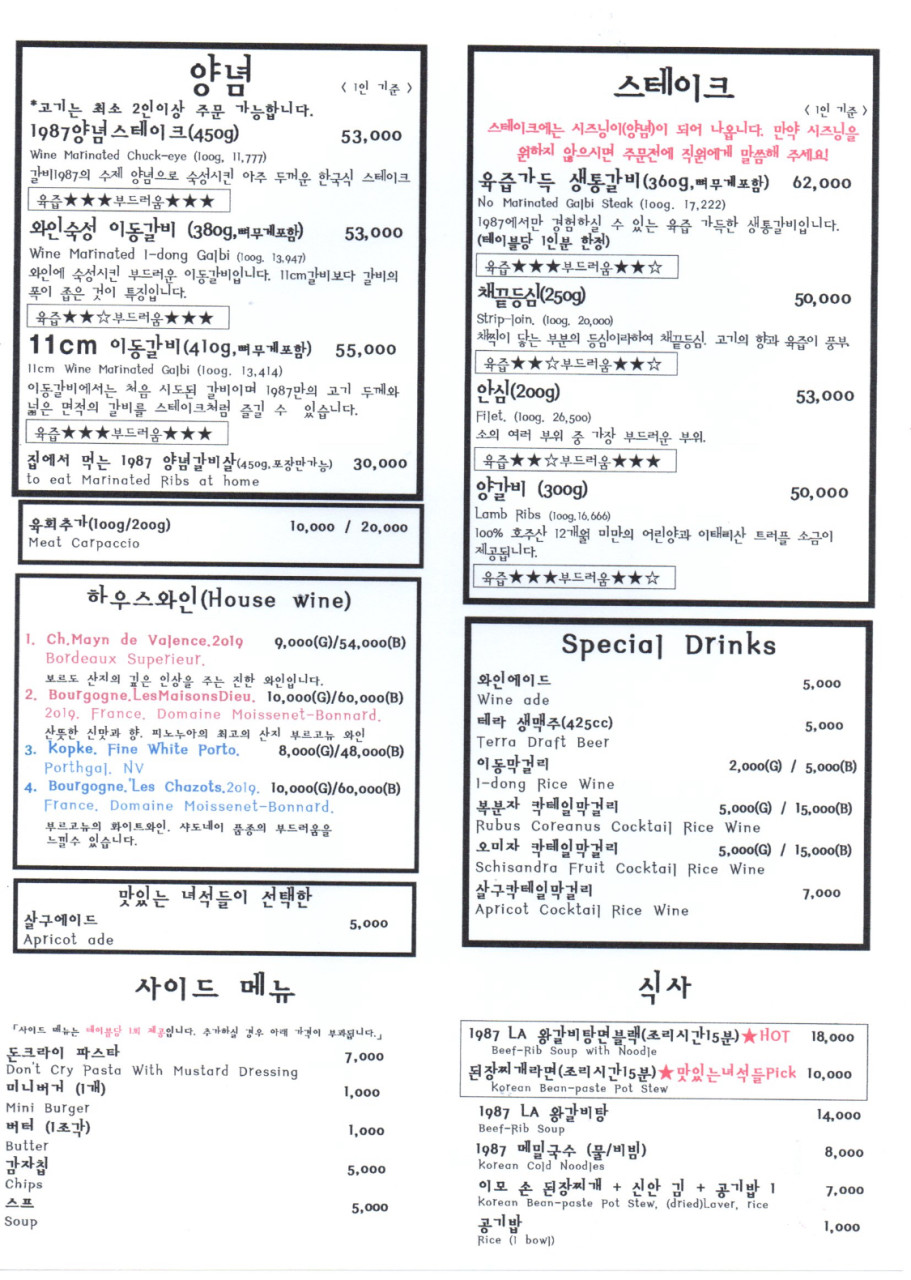 양념
< 1인 기준 >
*고기는 최소 2인이상 주문 가능합니다.
1987양념스테이크(450g) 53,000
Wine Marinated Chuck-eye (100g, 11,777)
갈비1987의 수제 양념으로 숙성시킨 아주 두꺼운 한국식 스테이크
육즙★★★부드러움★★★
와인숙성 이동갈비 (380g,뼈무게포함) 53,000
Wine Marinated I-dong Galbi (100g. 13,947)
와인에 숙성시킨 부드러운 이동갈비입니다. 11cm갈비보다 갈비의
폭이 좁은 것이 특징입니다.
육즙★★☆부드러움★★★
11cm 이동갈비(410g,뼈무게포함) 55,000
11cm Wine Marinated Galbi (100g. 13,414)
이동갈비에서는 처음 시도된 갈비이며 1987만의 고기 두께와
넓은 면적의 갈비를 스테이크처럼 즐길 수 있습니다.
육즙★★★부드러움★★★
집에서 먹는 1987 양념갈비살(450g,포장만가능) 30,000
to eat Marinated Ribs at home
육회추가(100g/200g) 10,000 / 20,000
Meat Carpaccio
하우스와인(House wine)
1. Ch.Mayn de Valence.2019 9,000(G)/54,000(B)
Bordeaux Superieur.
보르도 산지의 깊은 인상을 주는 진한 와인입니다.
2. Bourgogne.LesMaisonsDieu. 10,000(G)/60,000(B)
2019. France. Domaine Moissenet-Bonnard.
산뜻한 신맛과 향. 피노누아의 최고의 산지 부르고뉴 와인
3. Kopke. Fine White Porto. 8,000(G)/48,000(B)
Porthgal. NV
4. Bourgogne.'Les Chazots.2019. 10,000(G)/60,000(B)
France. Domaine Moissenet-Bonnard.
부르고뉴의 화이트와인. 샤도네이 품종의 부드러움을
느낄수 있습니다.
맛있는 녀석들이 선택한
살구에이드 5,000
Apricot ade
사이드 메뉴
「사이드 메뉴는 테이블당 1회 제공입니다. 추가하실 경우 아래 가격이 부과됩니다.」
돈크라이 파스타 7,000
Don't Cry Pasta With Mustard Dressing
미니버거 (1개) 1,000
Mini Burger
버터 (1조각) 1,000
Butter
감자칩 5,000
Chips
스프 5,000
Soup
스테이크
< 1인 기준 >
스테이크에는 시즈닝이(양념)이 되어 나옵니다. 만약 시즈닝을
원하지 않으시면 주문전에 직원에게 말씀해 주세요!
육즙가득 생통갈비(360g,뼈무게포함) 62,000
No Marinated Galbi Steak (100g. 17,222)
1987에서만 경험하실 수 있는 육즙 가득한 생통갈비입니다.
(테이블당 1인분 한정)
육즙★★★부드러움★★☆
채끝등심(250g) 50,000
Strip-loin. (100g. 20,000)
채찍이 닿는 부분의 등심이라하여 채끝등심. 고기의 향과 육즙이 풍부.
육즙★★☆부드러움★★☆
안심(200g) 53,000
Filet. (100g. 26,500)
소의 여러 부위 중 가장 부드러운 부위.
육즙★★☆부드러움★★★
양갈비 (300g) 50,000
Lamb Ribs (100g.16,666)
100% 호주산 12개월 미만의 어린양과 이태리산 트러플 소금이
제공됩니다.
육즙★★★부드러움★★☆
Special Drinks
와인에이드 5,000
Wine ade
테라 생맥주(425cc) 5,000
Terra Draft Beer
이동막걸리 2,000(G) / 5,000(B)
I-dong Rice Wine
복분자 칵테일막걸리 5,000(G) / 15,000(B)
Rubus Coreanus Cocktail Rice Wine
오미자 칵테일막걸리 5,000(G) / 15,000(B)
Schisandra Fruit Cocktail Rice Wine
살구칵테일막걸리 7,000
Apricot Cocktail Rice Wine
식사
1987 LA 왕갈비탕면블랙(조리시간15분)★HOT 18,000
Beef-Rib Soup with Noodle
된장찌개라면(조리시간15분)★맛있는녀석들Pick 10,000
Korean Bean-paste Pot Stew
1987 LA 왕갈비탕 14,000
Beef-Rib Soup
1987 메밀국수 (물/비빔) 8,000
Korean Cold Noodles
이모 손 된장찌개 + 신안 김 + 공기밥 1 7,000
Korean Bean-paste Pot Stew, (dried)Laver, rice
공기밥 1,000
Rice (1 bowl)